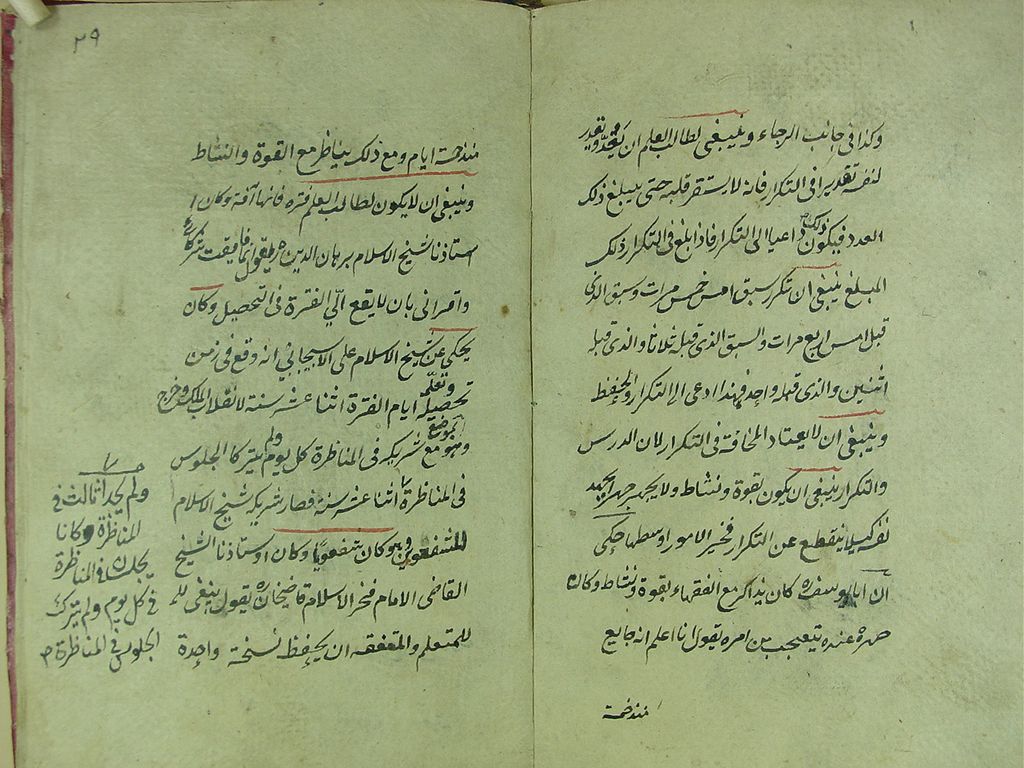 وكذا فى جانب الرجاء وينبغى لطالب العلم ان يعد ويقدر
لنفسه تقديرا فى التكرار فانه لا يستقر قلبه حتى يبلغ ذلك
العدد فيكون ذلك داعيا الى التكرار فاذا بلغ فى التكرار ذلك
المبلغ ينبغى ان تكرر سبق امس خمس مرات وسبق الذى
قبل امس اربع مرات والسبق الذى قبله ثلاثا والذى قبله
اثنين والذى قبله واحد فهذا ادعى الى التكرار والحفظ
وينبغى ان لا يعتاد المخافة فى التكرار لان الدرس
والتكرار ينبغى ان يكون بقوة ونشاط ولا يجهر جهرا يجهد
نفسه كيلا ينقطع عن التكرار فخير الامور اوسطها حكى
ان ابا يوسف ره كان يذاكر مع الفقهاء بقوة ونشاط وكان
صهره عنده يتعجب من امره يقول انا اعلم انه جايع
منذ خمسة
٢٩
منذ خمسة ايام ومع ذلك يناظر مع القوة والنشاط
وينبغى ان لا يكون لطالب العلم فترة فانها آفة وكان
استاذنا شيخ الاسلام برهان الدين ره يقول انما فقت شركائى
بان لا يقع الى الفترة فى التحصيل وكان
يحكى عن شيخ الاسلام على الاسبيجابى انه وقع فى زمن
تحصيله وتعلمه ايام الفترة اثنا عشر سنة لانقلاب الملك وخرج
وهو مع شريكه فى المناظرة كل يوم ولم يتركا الجلوس
فى المناظرة اثنا عشر سنة فصار شريكه شيخ الاسلام
للشفعويين وهو كان شفعويا وكان استاذنا الشيخ
القاضى الامام فخر الاسلام قاضيخان ره يقول ينبغى
للمتعلم والمتفقه ان يحفظ نسخة واحدة
ولم يجد اثالث فى
المناظرة وكانا
يجلسان فى المناظرة
فى كل يوم ولم يترك
الجلوس فى المناظرة